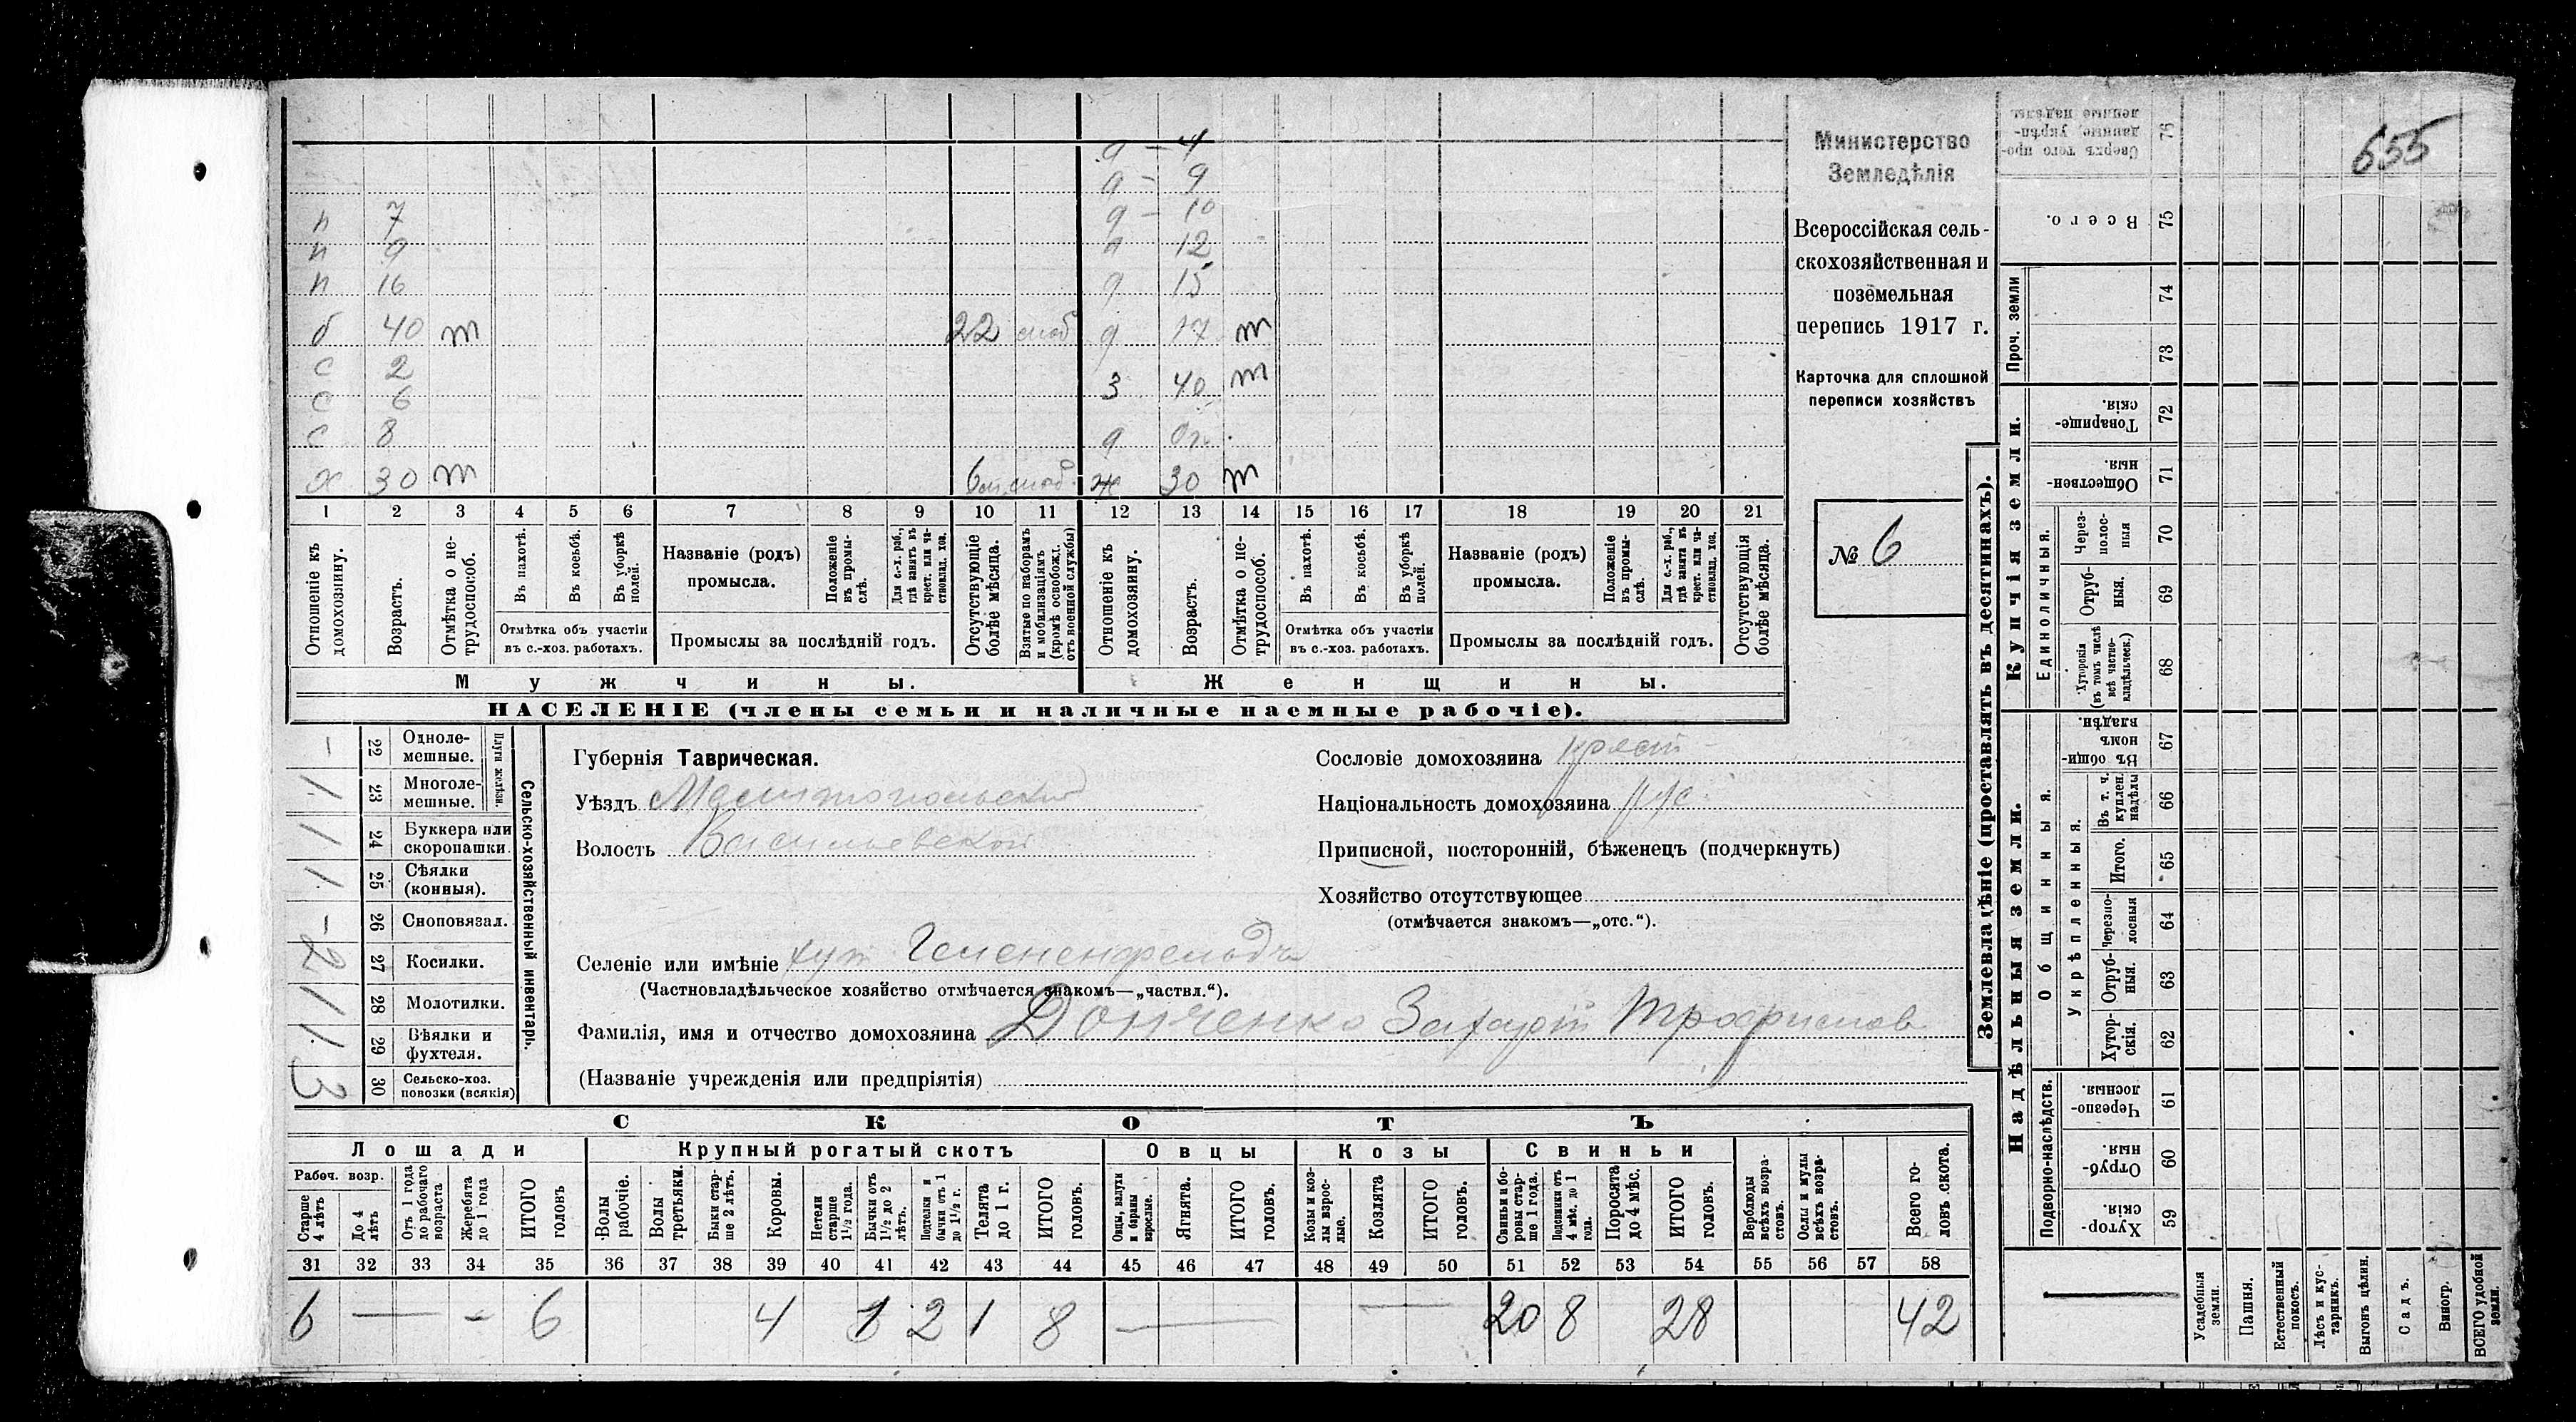 655
Министерство
Земледѣлія
Всероссійская сель-
скохозяйственная и
поземельная
перепись 1917 г.
Карточка для сплошной
переписи хозяйствъ
№ 6
д — 4
д — 9
п 7 д — 10
п 9 д 12
п 16 д 15
б 40 т 22 д 17 т
с 2 з 40 т
с 6
с 8 д
х 30 т 6 ж 30 т
1 2 3 4 5 6 7 8 9 10 11 12 13 14 15 16 17 18 19 20 21
Отношеніе къ домохозяину.
Возрастъ.
Отмѣтка о не-трудоспособ.
Въ пахотѣ.
Въ косьбѣ.
Въ уборкѣ полей.
Отмѣтка объ участіи
въ с.-хоз. работахъ.
Названіе (родъ)
промысла.
Положеніе въ промы-слѣ.
Для с.-х. раб., гдѣ занятъ въ крест. или ча-стновлад. хоз.
Промыслы за послѣдній годъ.
Отсутствующіе болѣе мѣсяца.
Взятые по наборамъ и мобилизаціямъ (кромѣ освобожд. отъ военной службы)
Отношеніе къ домохозяину.
Возрастъ.
Отмѣтка о не-трудоспособ.
Въ пахотѣ.
Въ косьбѣ.
Въ уборкѣ полей.
Отмѣтка объ участіи
въ с.-хоз. работахъ.
Названіе (родъ)
промысла.
Положеніе въ промы-слѣ.
Для с.-х. раб., гдѣ занята въ крест. или ча-стновлад. хоз.
Промыслы за послѣдній годъ.
Отсутствующія болѣе мѣсяца.
Мужчины.
Женщины.
НАСЕЛЕНІЕ (члены семьи и наличные наемные рабочіе).
Сельско-хозяйственный инвентарь.
Плуги желѣзн.
— 22 Одноле-мешные.
1 23 Многоле-мешные.
1 24 Буккера или скоропашки.
1 25 Сѣялки (конныя).
- 26 Сноповязал.
2 27 Косилки.
1 28 Молотилки.
1 29 Вѣялки и фухтеля.
3 30 Сельско-хоз. повозки (всякія)
Губернія Таврическая.
Уѣздъ Мелитопольский
Волость Васильевской
Сословіе домохозяина крест
Національность домохозяина рус.
Приписной, посторонній, бѣженецъ (подчеркнуть)
Хозяйство отсутствующее
(отмѣчается знакомъ—„отс.“).
Селеніе или имѣніе хут
(Частновладѣльческое хозяйство отмѣчается знакомъ—„частвл.“).
Фамилія, имя и отчество домохозяина Донченко Захарій Трофимов
(Названіе учрежденія или предпріятія)
СКОТЪ
Лошади
Крупный рогатый скотъ
Овцы
Козы
Свиньи
Рабоч. возр.
Старше 4 лѣтъ
До 4 лѣтъ
Отъ 1 года до рабочаго возраста
Жеребята до 1 года
ИТОГО головъ
Волы рабочіе.
Волы третьяки.
Быки стар-ше 2 лѣтъ.
Коровы.
Нетели старше 1½ года.
Бычки отъ 1½ до 2 лѣтъ.
Подтелки и бычки отъ 1 до 1½ г.
Телята до 1 г.
ИТОГО головъ.
Овцы, валухи и бараны взрослые.
Ягнята.
ИТОГО головъ.
Козы и коз-лы взрос-лые.
Козлята
ИТОГО головъ.
Свиньи и бо-ровы стар-ше 1 года.
Подсвинки отъ 4 мѣс. до 1 года.
Поросята до 4 мѣс.
ИТОГО головъ.
Верблюды всѣхъ возра-стовъ.
Ослы и мулы всѣхъ возра-стовъ.
Всего го-ловъ скота.
31 32 33 34 35 36 37 38 39 40 41 42 43 44 45 46 47 48 49 50 51 52 53 54 55 56 57 58
6 — - 6 4 1 2 1 8 — — 20 8 28 42
Землевладѣніе (проставлять въ десятинахъ).
Надѣльныя земли.
Купчія земли.
Проч. земли
Подворно-наслѣдств.
Общинныя.
Укрѣпленныя.
Единоличныя.
Сверхъ того про-данные, укрѣп-ленные надѣлы. 76
Всего. 75
74
73
Товарище-скія. 72
Обществен-ныя. 71
Через-полос-ныя 70
Отруб-ныя. 69
Хуторскія (въ томъ числѣ всѣ частно-владѣльческ.) 68
Въ общин-номъ владѣн. 67
Въ т. ч. куплен. надѣлы 66
Итого. 65
Черезпо-лосныя 64
Отруб-ныя. 63
Хутор-скія. 62
Черезпо-лосныя. 61
Отруб-ныя. 60
Хутор-скія. 59
Усадебныя земли.
Пашня.
Естественный покосъ.
Лѣсъ и кус-тарникъ.
Выгонъ цѣлин.
Садъ.
Виногр.
ВСЕГО удобной земли.